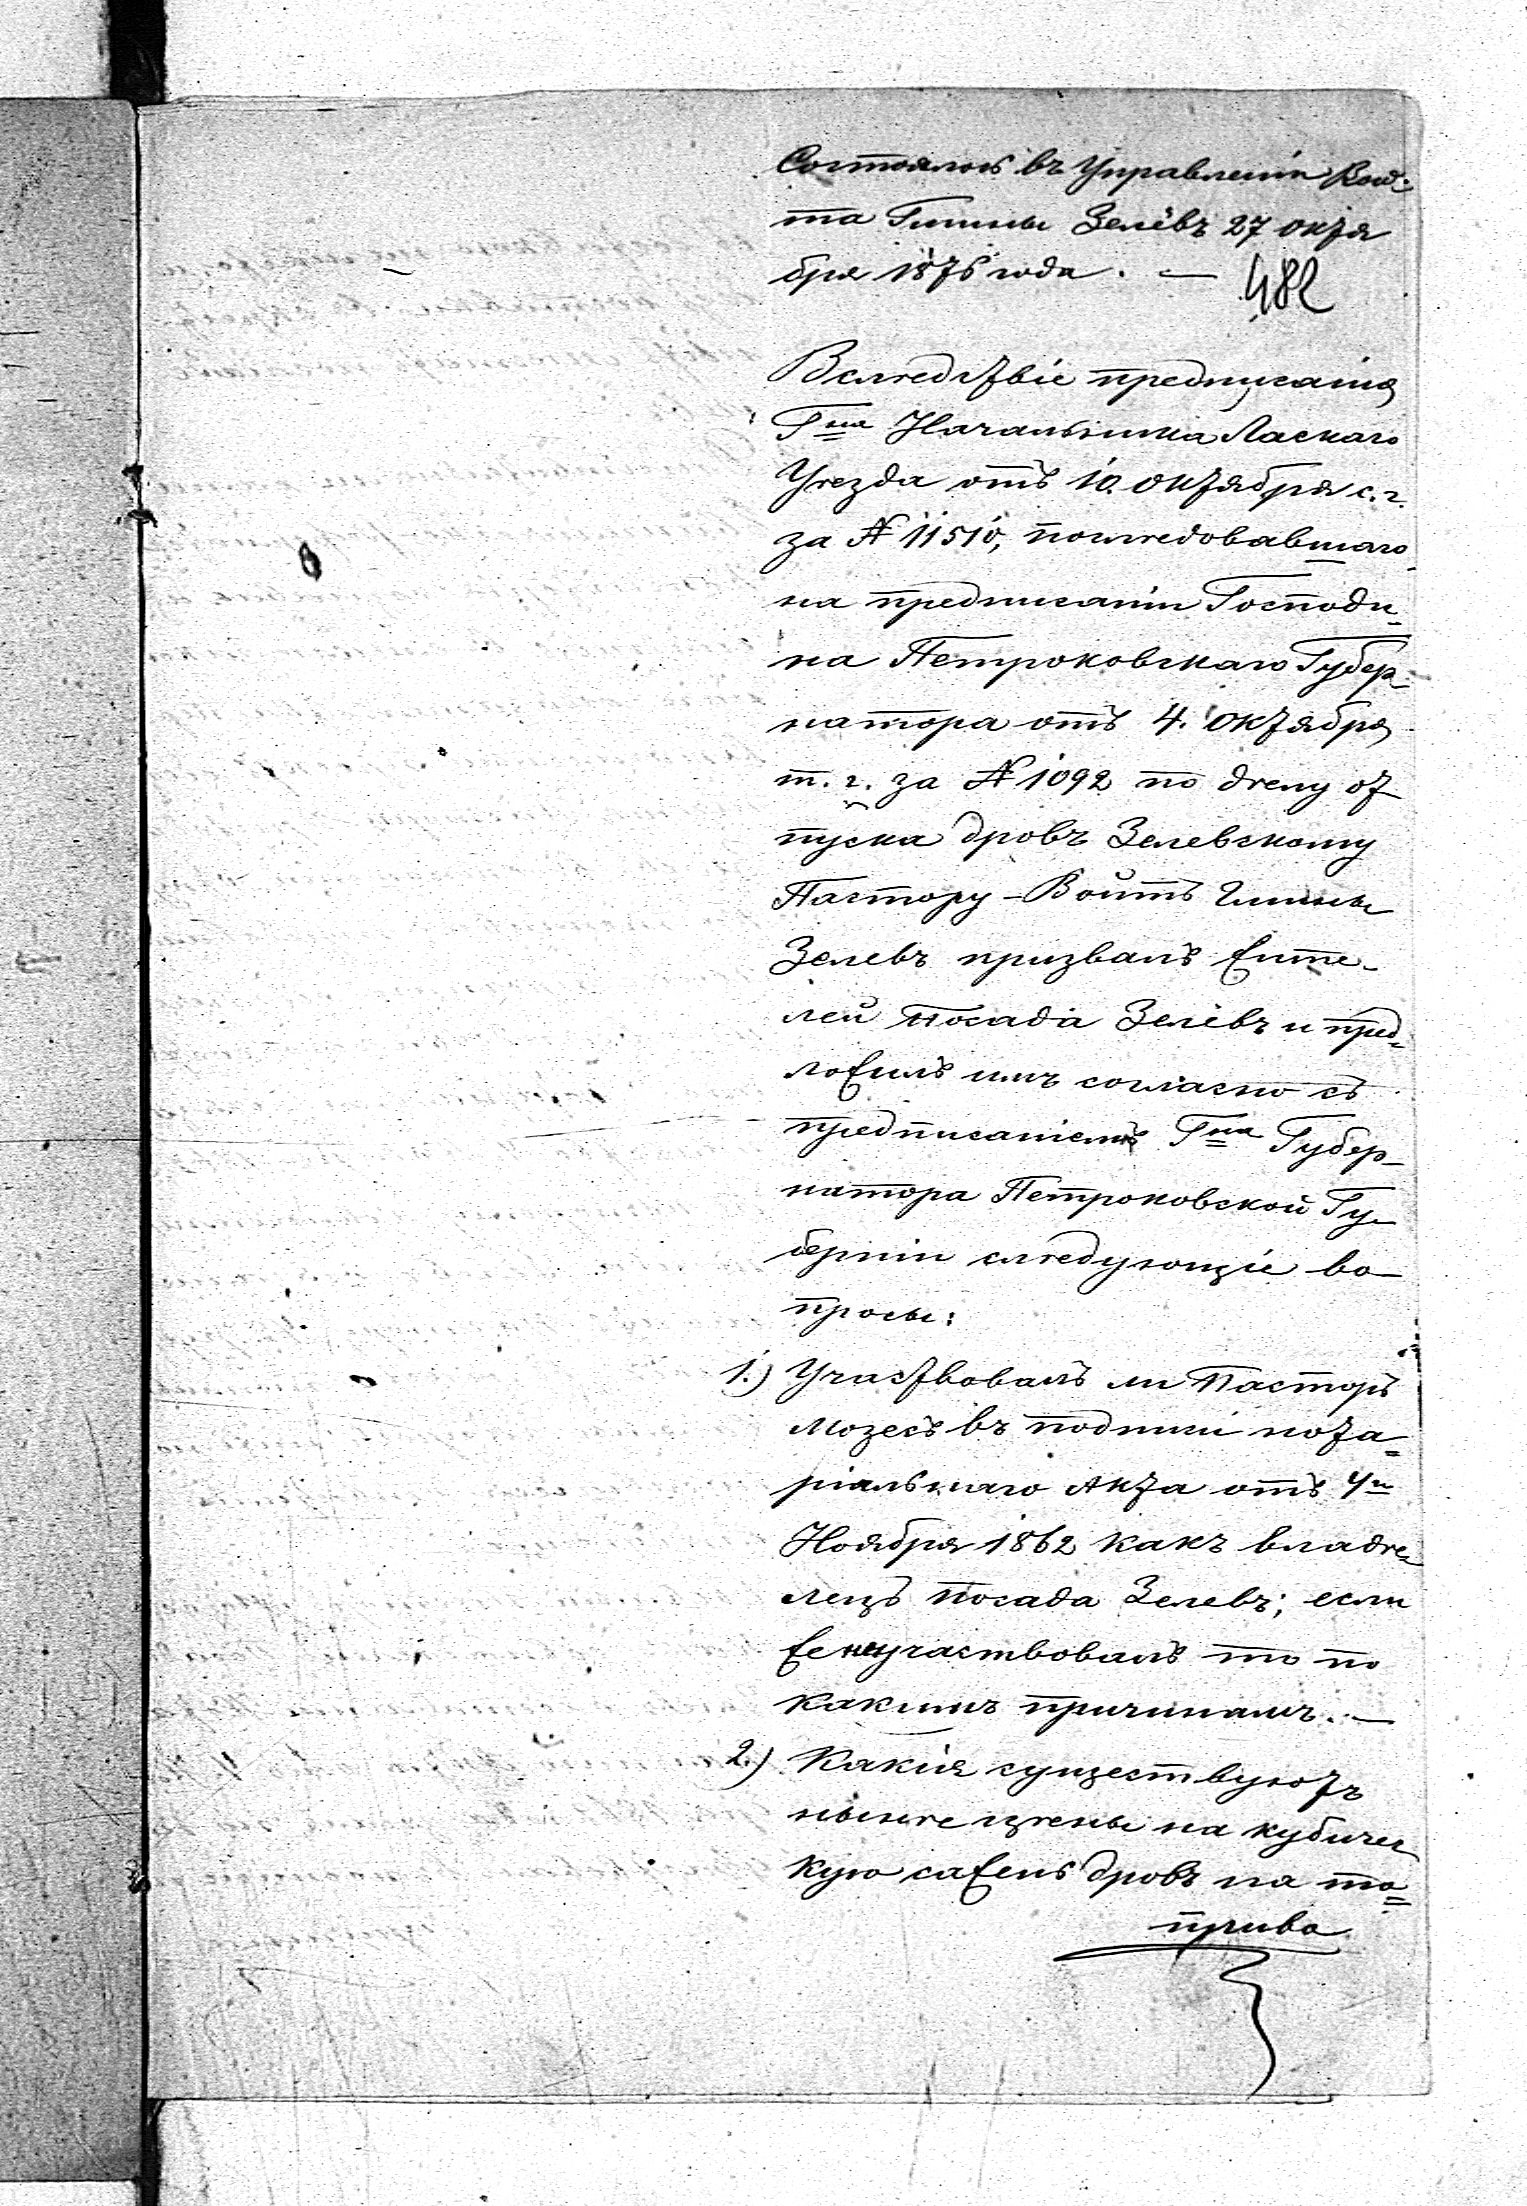 Состоялось въ Управленіи Вой-
та Гмины Зелёвъ 27 октя
бря 1876 года. —
482
Вслѣдствіе предписанія
Г<sup>на</sup> Начальника Ласкаго
Уѣзда отъ 10. октября с. г.
за № 11510, послѣдовавшаго
на предписаніи Господи-
на Петроковскаго Губер-
натора отъ 4. октября
т. г. за № 1092 по дѣлу от
пуска дровъ Зелевскому
Пастору – Войтъ Гмины
Зелевъ призвалъ жите-
лей посада Зелёвъ и пред-
ложилъ имъ согласно съ
предписаніемъ Г<sup>на</sup> Губер-
натора Петроковской Гу-
берніи слѣдующіе во-
просы:
1.) Участвовалъ ли Пасторъ
Мозесъ въ подписи нота-
ріальнаго Акта отъ 4<sup>го</sup>
Ноября 1862 какъ владѣ-
лецъ посада Зелевъ; если
же неучаствовалъ то по
какимъ причинамъ. —
2.) Какія существуютъ
нынѣ цѣны на кубичес
кую сажень дровъ на то-
пливо